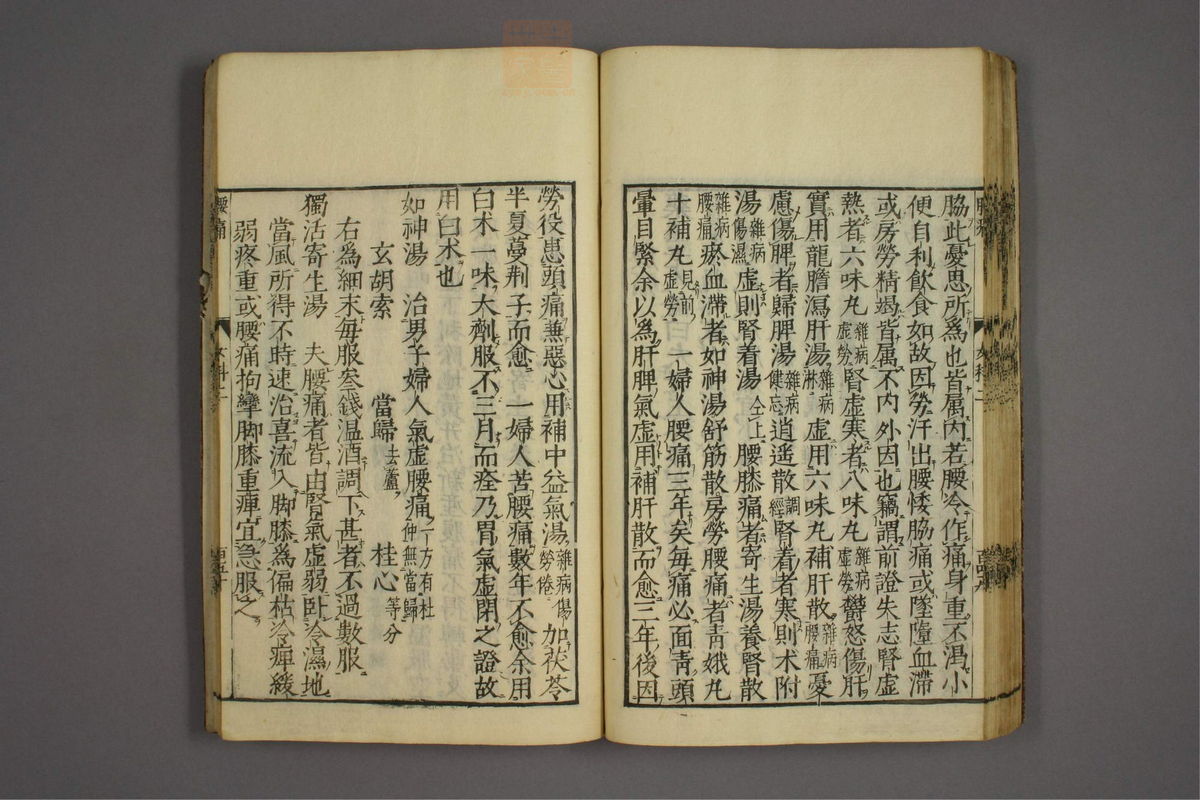 脇此憂思所為也皆属内若腰冷作痛身重不渇小
便自利飲食如故因勞汗出腰矮脇痛或墜墮血滯
或房勞精竭皆属不内外因也竊謂前證失志腎虛
熱者六味丸雜病虛勞腎虛寒者八味丸雜病虛勞欝怒傷肝
實用龍膽瀉肝湯雜病淋虛用六味丸補肝散雜病腰痛憂
慮傷脾者歸脾湯雜病健忘逍遥散調經腎着者寒則术附
湯雜病傷濕虛則腎着湯仝上腰膝痛者寄生湯養腎散
雜病腰痛瘀血滯者如神湯舒筋散房勞腰痛者青娥丸
十補丸見前虛勞 一婦人腰痛三年矣毎痛必面青頭
暈目緊余以為肝脾氣虛用補肝散而愈三年後因
勞役患頭痛兼惡心用補中益氣湯雜病傷勞倦加茯苓
半夏蔓荆子而愈 一婦人苦腰痛數年不愈余用
白术一味大劑服不三月而痊乃胃氣虛閉之證故
用白术也
如神湯 治男子婦人氣虛腰痛一方有杜仲無當歸
玄胡索 當歸去蘆 桂心等分
右為細末毎服叁錢温酒調下甚者不過數服
獨活寄生湯 夫腰痛者皆由腎氣虛弱卧冷濕地
當風所得不時速治喜流入脚膝為偏枯冷痺緩
弱疼重或腰痛拘攣脚膝重痺宜急服之
腰痛 女科二